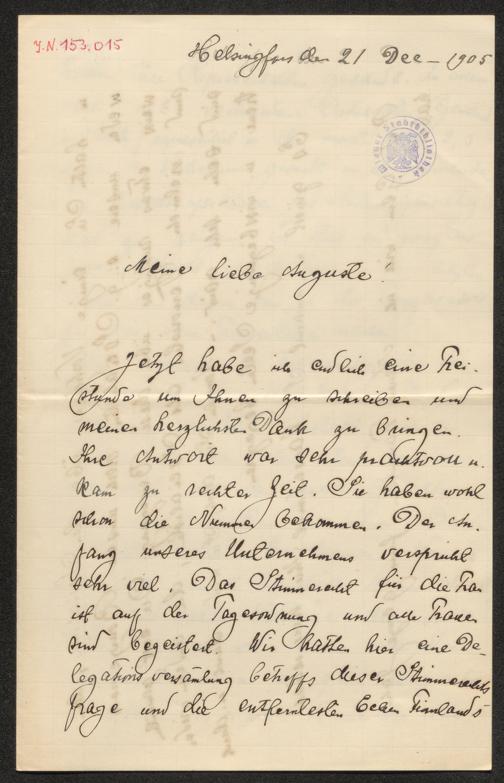 J.N. 153.015
Helsingfors den 21 Dec – 1905
Wiener Stadtbibliothek
Meine liebe Auguste!
Jetzt habe ich endlich eine Frei-
stunde um Ihnen zu schreiben und
meinen herzlichsten Dank zu bringen.
Ihre Antwort war sehr prachtvoll u.
kam zu rechter Zeit. Sie haben wohl
schon die Nummer bekommen. Der An-
fang unseres Unternehmens verspricht
sehr viel. Das Stimmrecht für die Frau
ist auf der Tagesordnung und alle Frauen
sind begeistert. Wir hatten hier eine De-
legationsversamlung betreffs dieser Stimmrechts
frage und die entferntesten Ecken Finnlands